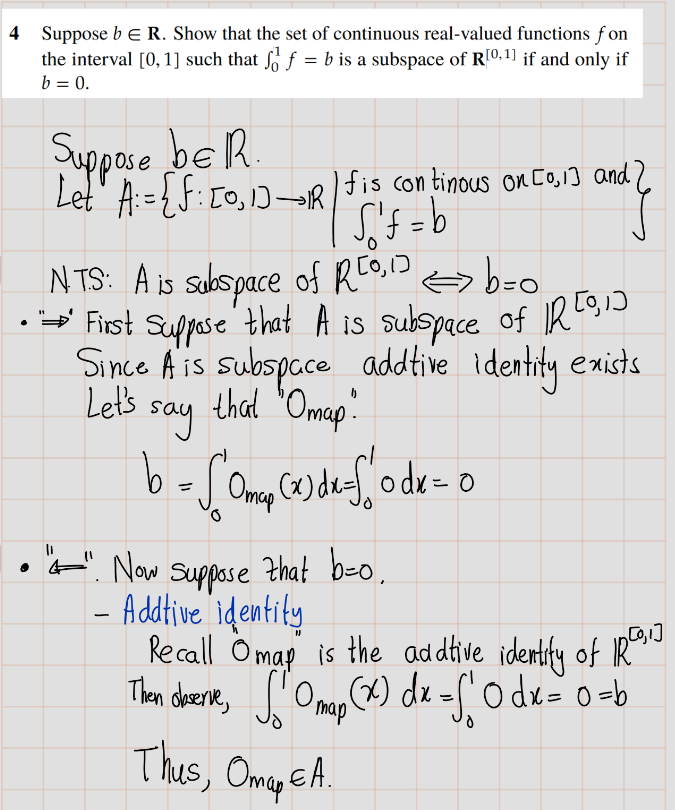 4 Suppose b ∈ R. Show that the set of continuous real-valued functions f on
the interval [0, 1] such that ∫₀¹ f = b is a subspace of R^[0,1] if and only if
b = 0.
Suppose b∈ℝ.
Let A:={f:[0,1]→ℝ | f is continous on [0,1] and
∫₀¹f = b}
N.T.S: A is subspace of ℝ^[0,1] ⟺ b=0
• "⇒" First Suppose that A is subspace of ℝ^[0,1]
Since A is subspace addtive identity exists
Let's say that "0map".
b = ∫₀¹ 0map(x)dx = ∫₀¹ 0dx = 0
• "⇐". Now suppose that b=0.
- Addtive identity
Recall "0map" is the addtive identity of ℝ^[0,1]
Then observe, ∫₀¹ 0map(x) dx = ∫₀¹ 0 dx = 0 = b
Thus, 0map ∈ A.